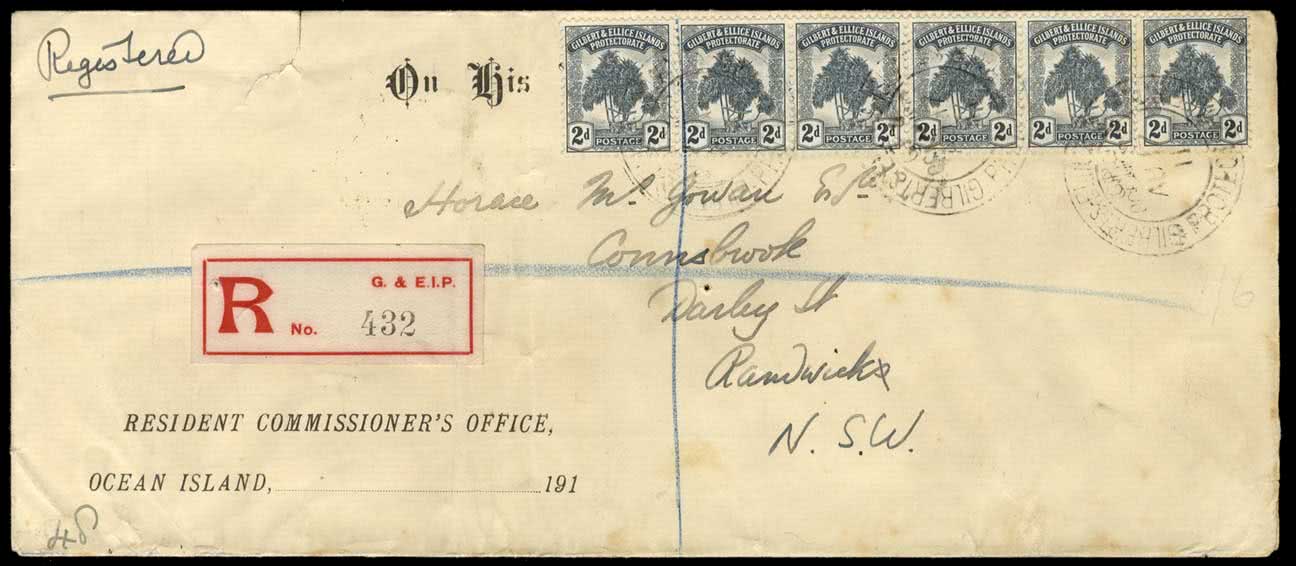 Registered
On His
GILBERT & ELLICE ISLANDS PROTECTORATE 2d POSTAGE 2d
GILBERT & ELLICE ISLANDS PROTECTORATE 2d POSTAGE 2d
GILBERT & ELLICE ISLANDS PROTECTORATE 2d POSTAGE 2d
GILBERT & ELLICE ISLANDS PROTECTORATE 2d POSTAGE 2d
GILBERT & ELLICE ISLANDS PROTECTORATE 2d POSTAGE 2d
GILBERT & ELLICE ISLANDS PROTECTORATE 2d POSTAGE 2d
Horace McGowan Esq
Connsbrook
Darley St
Randwick
N. S. W.
R
G. & E.I.P.
No. 432
RESIDENT COMMISSIONER'S OFFICE,
OCEAN ISLAND, 191
48